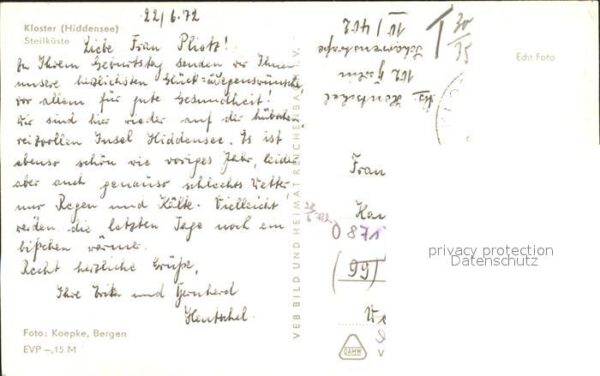 Kloster (Hiddensee)
Steilküste
22/6.72
Liebe Frau Pliotz!
Zu Ihrem Geburtstag senden wir Ihnen
unsere herzlichsten Glück- u. Segenswünsche,
vor allem für gute Gesundheit!
Wir sind hier wieder auf der hübschen
reizvollen Insel Hiddensee. Es ist
ebenso schön wie voriges Jahr, leider
aber auch genauso schlechtes Wetter,
nur Regen und Kälte. Vielleicht
werden die letzten Tage noch ein
bißchen wärmer.
Recht herzliche Grüße,
Ihre Erika und Gernhard
Hentschel.
Foto: Koepke, Bergen
EVP –,15 M
VEB BILD UND HEIMAT REICHENBACH I. V.
Abs. Hentschel
102 Berlin
Scharrenstraße
10/402
30/35
Echt Foto
Frau
0871
(99)
privacy protection
Datenschutz
DAMW
V